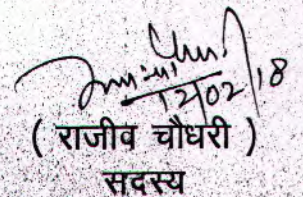 12/02/18
( राजीव चौधरी )
सदस्य